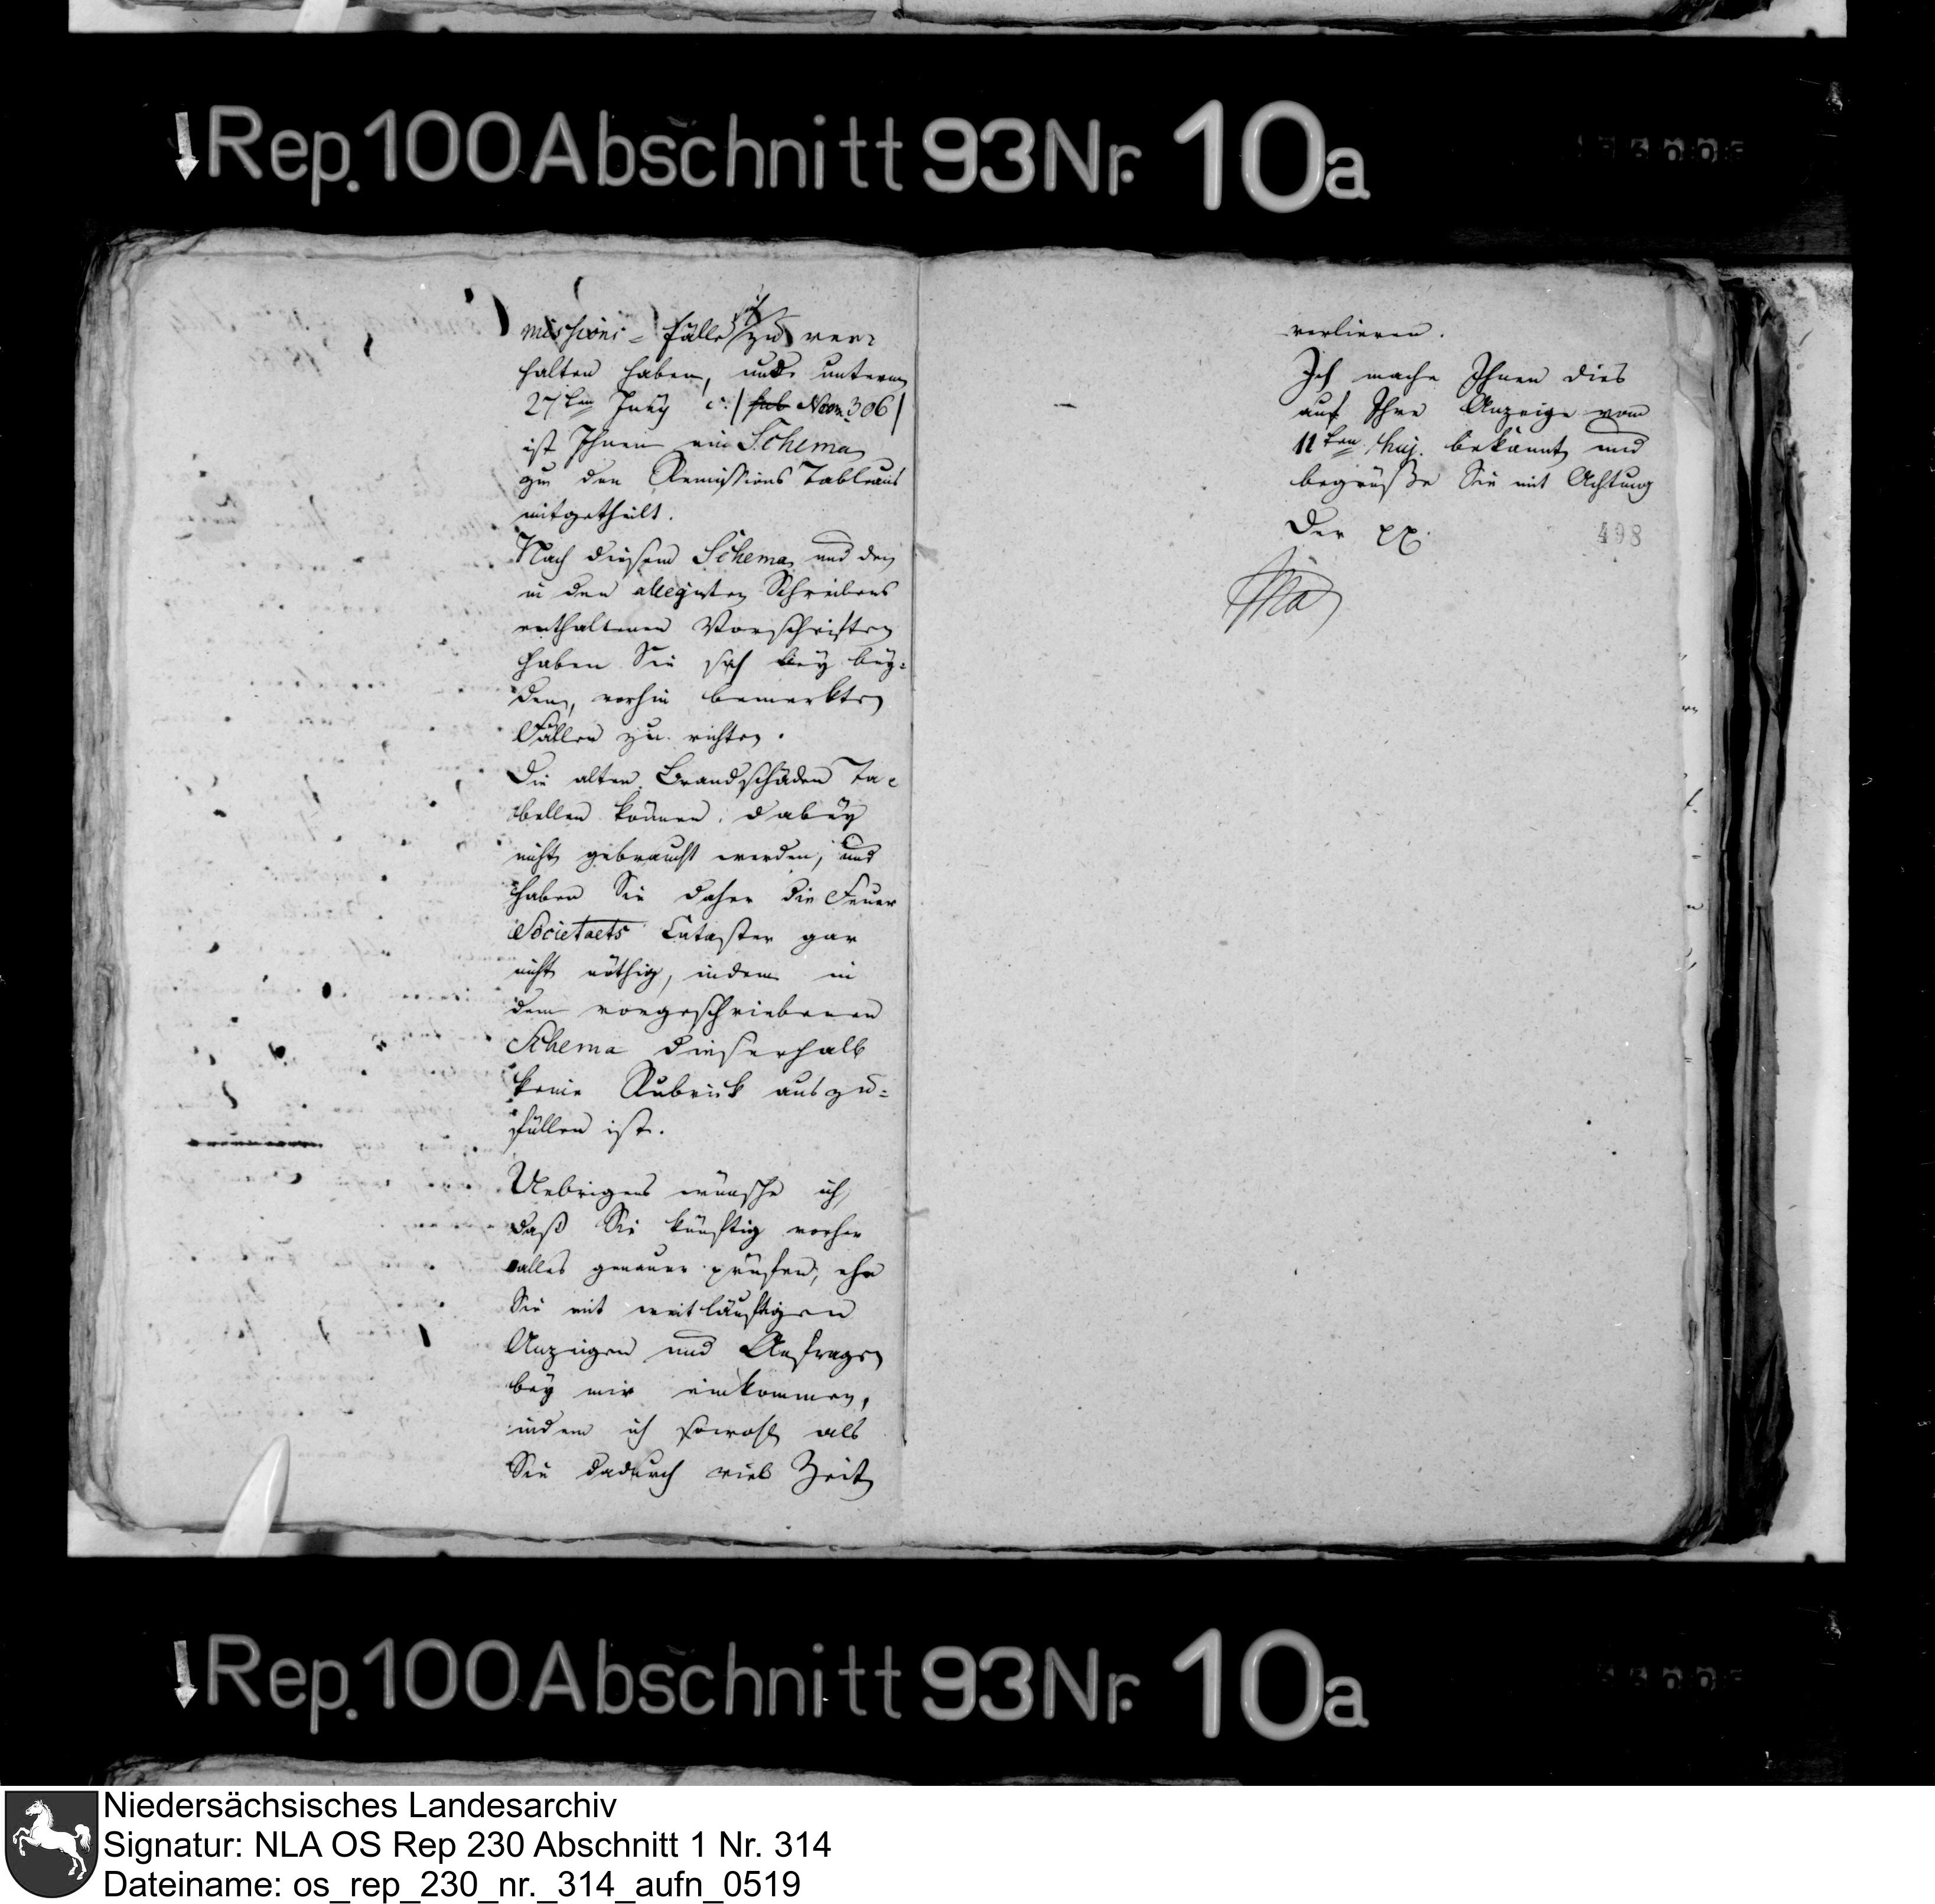 Rep. 100 Abschnitt 93 Nr. 10a
missions-Fälle zu ver-
halten haben, und unterm
27ten July c. /: sub Num 306 /
ist Ihnen ein Schema
zu den Remissions Tableaus
mitgetheilt.
Nach diesem Schema und den
in den allegirten Schreibens
enthaltenen Vorschriften
haben Sie sich bey bey-
den, vorhin bemerkten
Fällen zu richten.
Die alten Brandschäden Ta-
bellen können dabey
nicht gebraucht werden, und
haben Sie daher die Feuer
Societaets Cataster gar
nicht nöthig, indem in
dem vorgeschriebenen
Schema dieserhalb
keine Rubrick auszu-
füllen ist.
Uebrigens wünsche ich,
daß Sie künftig vorher
alles genauer prüfen, ehe
Sie mit weitläuftigen
Anzeigen und Anfragen
bey mir einkommen,
indem ich sowohl als
Sie dadurch viel Zeit
verlieren.
Ich mache Ihnen dies
auf Ihre Anzeige vom
11ten huj. bekannt und
begrüße Sie mit Achtung
Der pp.
498
Rep. 100 Abschnitt 93 Nr. 10a
Niedersächsisches Landesarchiv
Signatur: NLA OS Rep 230 Abschnitt 1 Nr. 314
Dateiname: os_rep_230_nr._314_aufn_0519